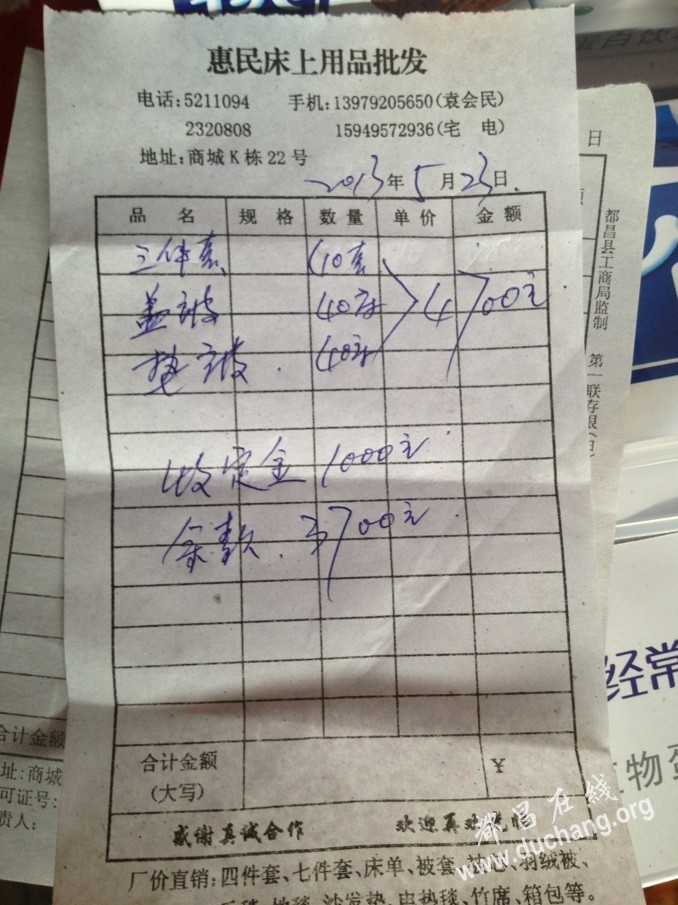 惠民床上用品批发
电话:5211094 手机:13979205650(袁会民)
2320808 15949572936(宅 电)
地址:商城K栋22号
2013年5月23日
品 名 规 格 数 量 单 价 金 额
三件套 40套
盖被 40床 4700元
垫被 40床
收定金 1000元
余款 3700元
合计金额
(大写) ¥
感谢真诚合作 欢迎再次光临
厂价直销:四件套、七件套、床单、被套、被芯、羽绒被、
毛毯、地毯、沙发垫、电热毯、竹席、箱包等。
日
都昌县工商局监制
第一联存根(白)
合计金额
址:商城
可证号:
责人:
蛋白饮
经常
物蛋
都昌在线
www.duchang.org